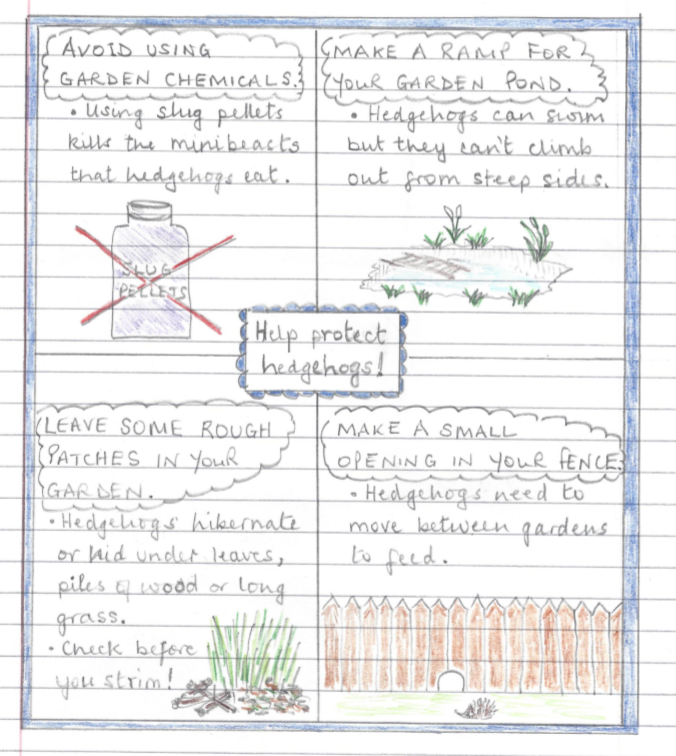 AVOID USING
GARDEN CHEMICALS.
• Using slug pellets
kills the minibeasts
that hedgehogs eat.
SLUG
PELLETS
MAKE A RAMP FOR
YOUR GARDEN POND.
• Hedgehogs can swim
but they can't climb
out from steep sides.
Help protect
hedgehogs!
LEAVE SOME ROUGH
PATCHES IN YOUR
GARDEN.
• Hedgehogs' hibernate
or hid under leaves,
piles of wood or long
grass.
• Check before
you strim!
MAKE A SMALL
OPENING IN YOUR FENCE.
• Hedgehogs need to
move between gardens
to feed.